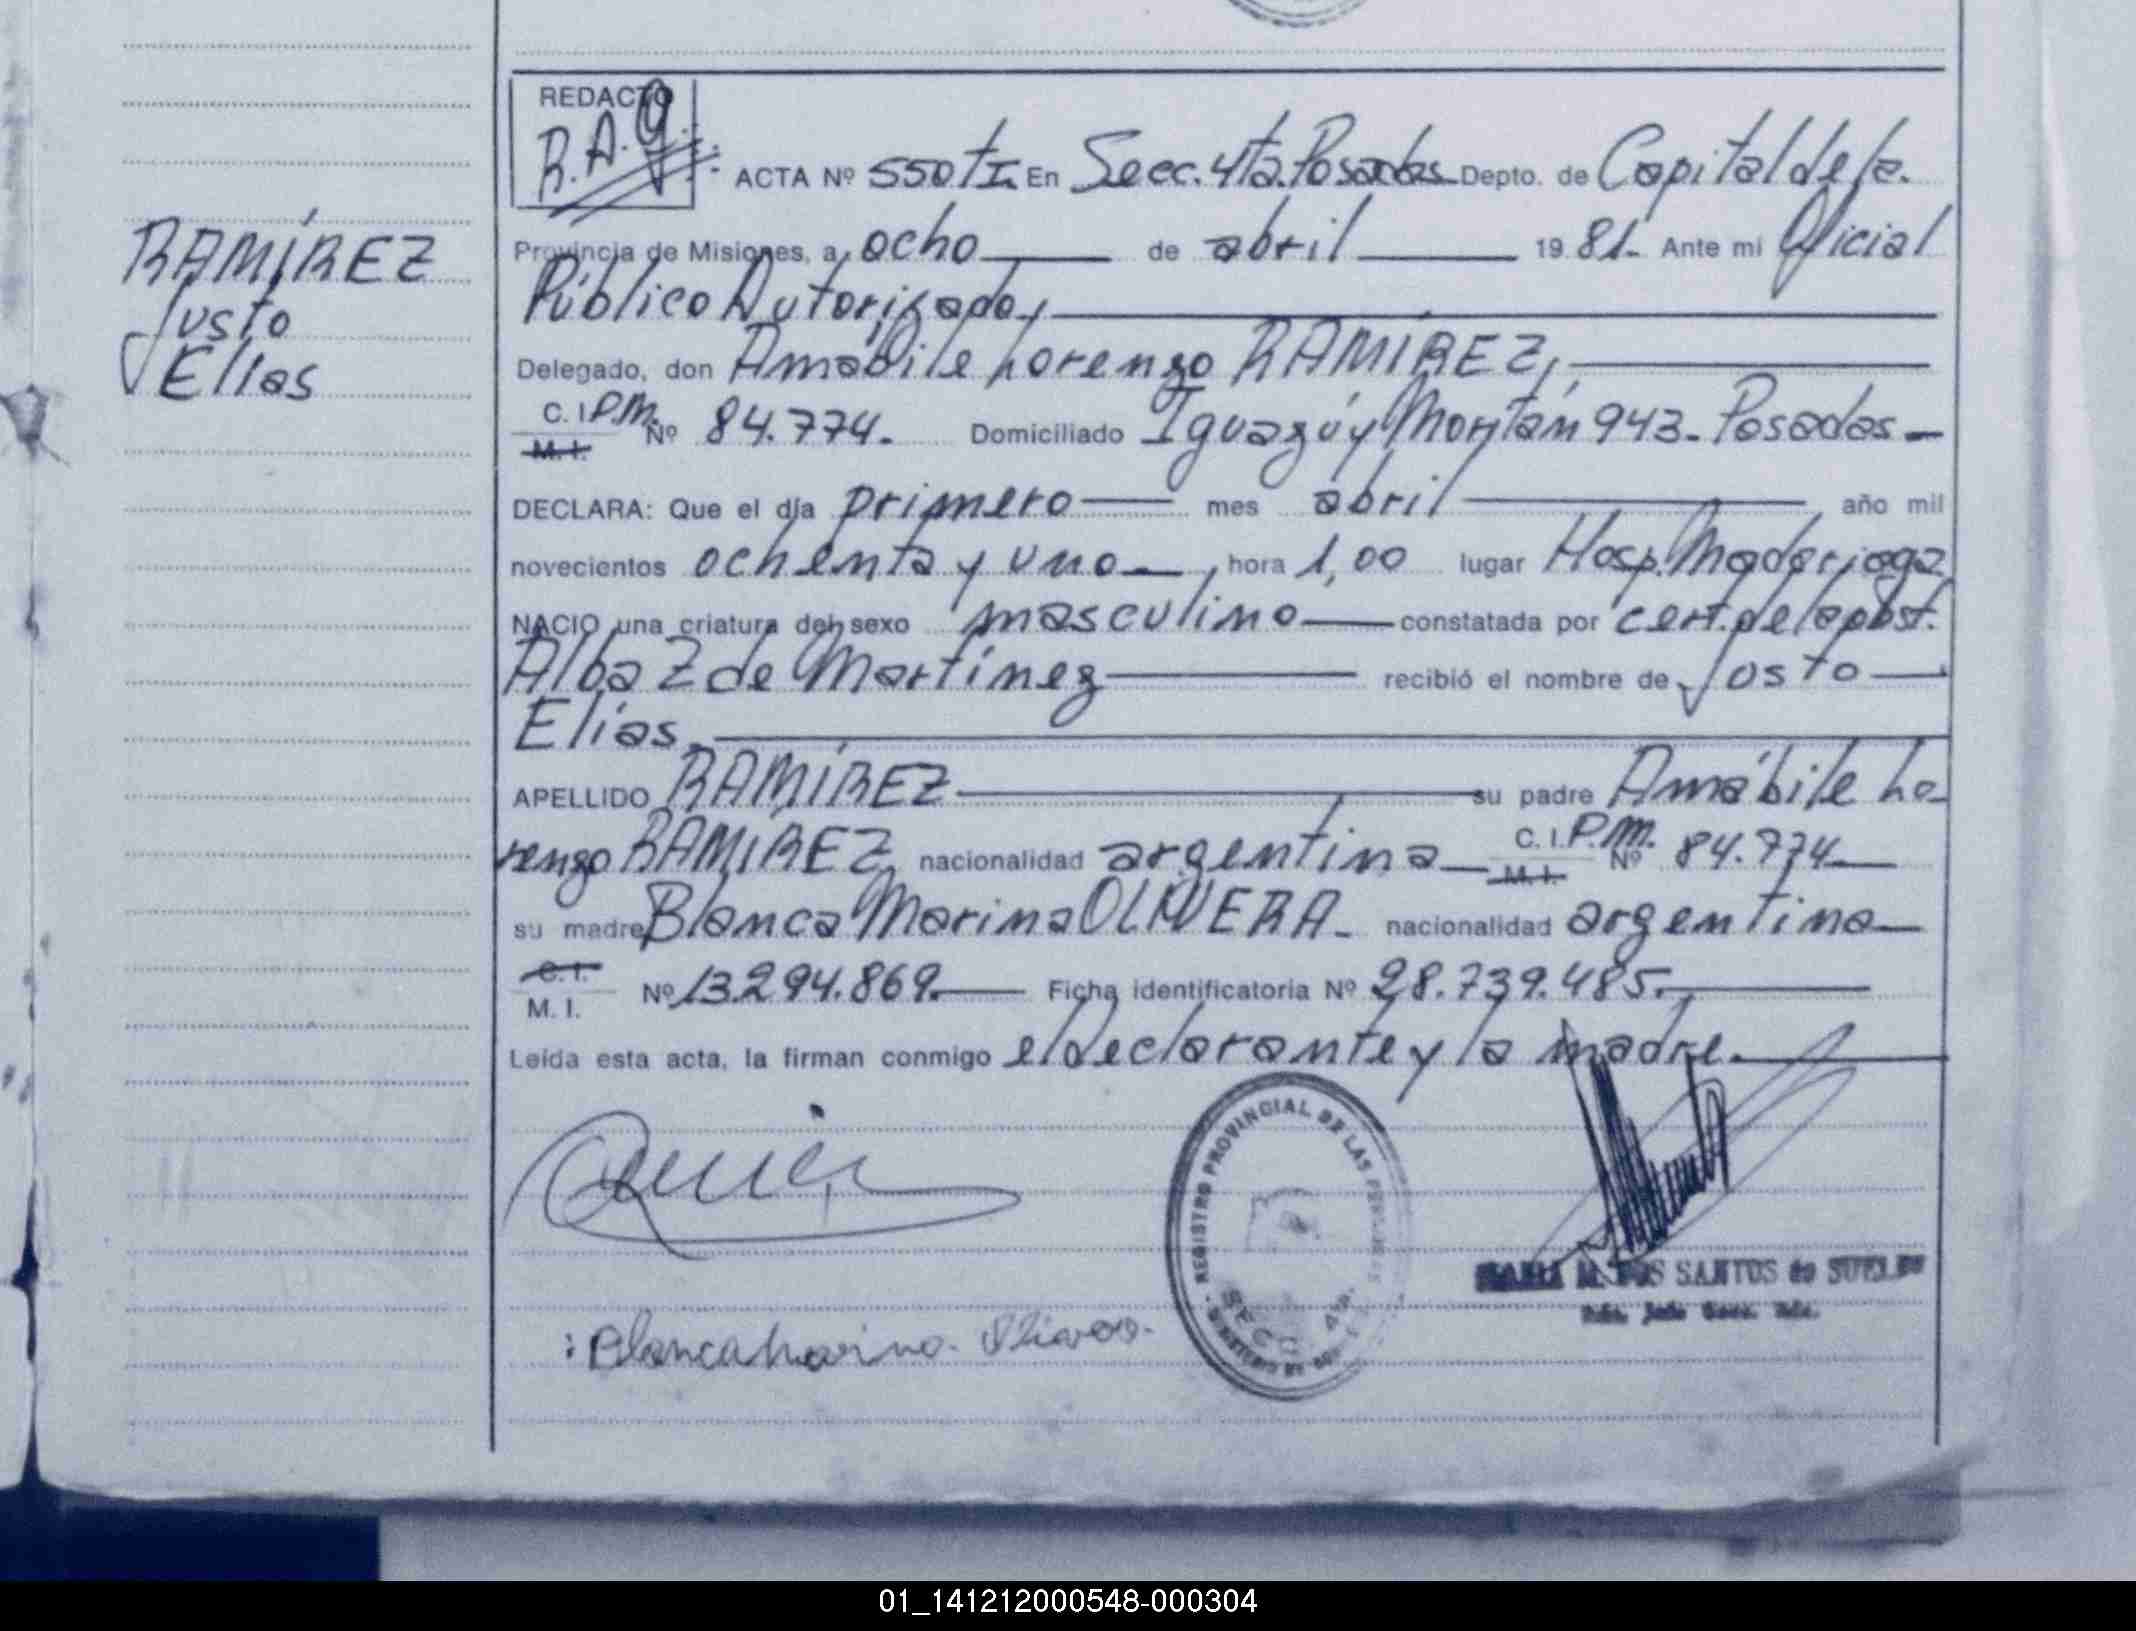 REDACTO
R.A.G.
ACTA Nº 550 tI. En Secc. 4ta. Posadas Depto. de Capital de la
Provincia de Misiones, a ocho de abril 1981. Ante mi Oficial
Público Autorizado,
Delegado, don Amábile Lorenzo RAMÍREZ,
C. I. P.M. M. I. Nº 84.774. Domiciliado Iguazú y Montán 943. Posadas
DECLARA: Que el día primero mes abril año mil
novecientos ochenta y uno, hora 1,00 lugar Hosp. Madariaga
NACIO una criatura del sexo masculino constatada por cert. de la obst.
Alba Z de Martínez recibió el nombre de Justo
Elías.
APELLIDO RAMÍREZ su padre Amábile Lo-
renzo RAMÍREZ, nacionalidad argentina C. I. P.M. M. I. Nº 84.774
su madre Blanca Marina OLIVERA. nacionalidad argentina
C. I. M. I. Nº 13.294.869. Ficha identificatoria Nº 28.739.485.
Leída esta acta, la firman conmigo el declarante y la madre.
RAMÍREZ
Justo
Elías
REGISTRO PROVINCIAL DE LAS PERSONAS
SECC. 4ta.
MARIA M. DOS SANTOS de
Blanca Marina Olivera
01_141212000548-000304